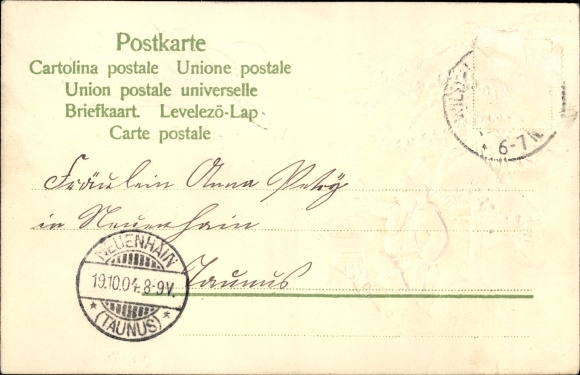 Postkarte
Cartolina postale Unione postale
Union postale universelle
Briefkaart. Levelezö-Lap
Carte postale
6-7 N
Fräulein Anna Petry
in Neuenhain
Taunus
NEUENHAIN
19.10.04. 8-9V.
* (TAUNUS) *